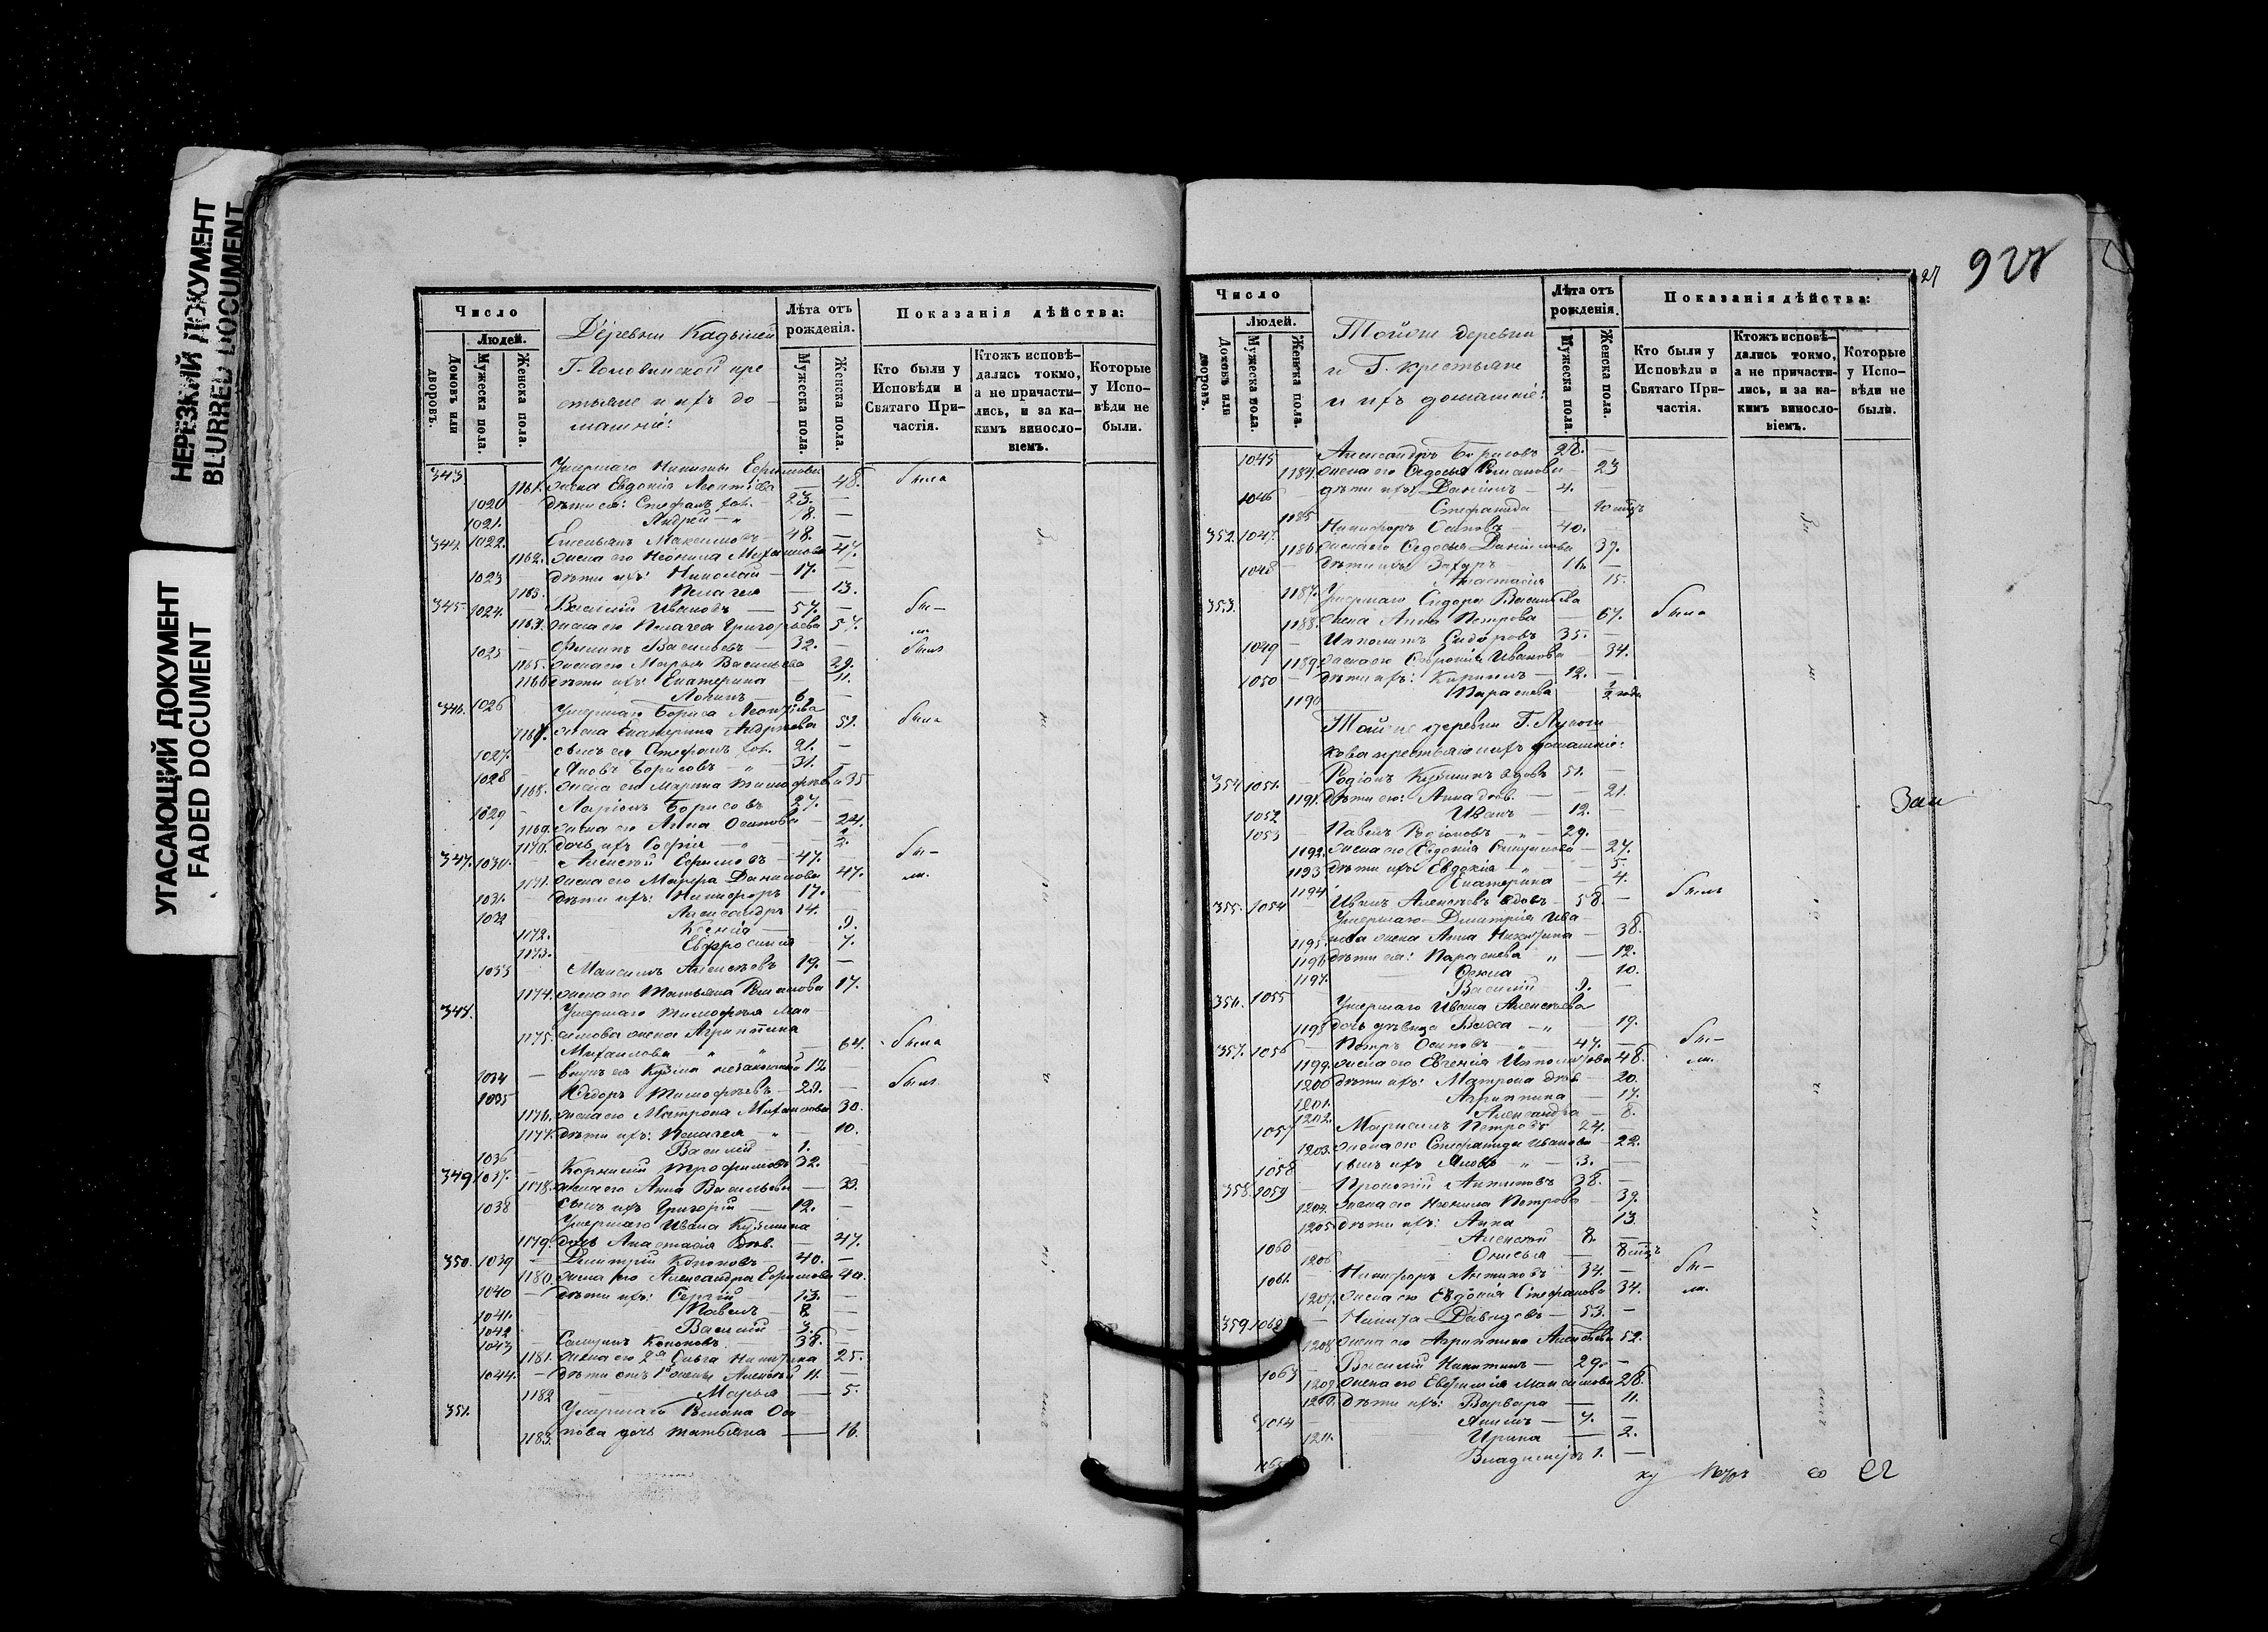 НЕРЕЗКИЙ ДОКУМЕНТ
BLURRED DOCUMENT
УГАСАЮЩИЙ ДОКУМЕНТ
FADED DOCUMENT
Число
Людей.
Домовъ или дворовъ.
Мужеска пола.
Женска пола.
Деревни Кадышей
Г. Головинской кре-
стьяне и ихъ до-
машніе:
Лѣта отъ рожденія.
Мужеска пола.
Женска пола.
Показанія дѣйства:
Кто были у Исповѣди и Святаго При-частія.
Ктожъ исповѣ-дались токмо, а не причасти-лись, и за ка-кимъ винослo-віемъ.
Которые у Испо-вѣди не были.
343 Умершаго Никиты Ефимова
1161. жена Евдокія Леонтіева — 48. была
1020 дѣти ея: Стефанъ хол. 23. —
1021. Андрей — „ 18. —
344. 1022. Емельянъ Максимовъ 48. —
1162. жена его Неонила Михаилова 47.
1023 дѣти ихъ: Николай — 17. —
1163. Пелагея — 13.
345. 1024. Василій Ивановъ — 57. — бы-
1164. жена его Пелагея Григорьева 57. ли.
1025 Филипъ Васильевъ — 32. — былъ
1165. жена его Марья Васильева 29.
1166 дѣти ихъ: Екатерина — 11.
1026 Логинъ — 6. —
346. Умершаго Бориса Леонтіева
1167. жена Екатерина Андреева 51. была
1027. сынъ ея Стефанъ хол. 21. —
1028 Яковъ Борисовъ — „ — 31.
1168. жена его Марина Тимофѣева 35
1029 Ларіонъ Борисовъ 27. —
1169. жена его Анна Осипова — 24.
1170. дочь ихъ Софія — „ —
347. 1030. Алексѣй Ефимовъ — 47. — бы-
1171. жена его Марфа Данилова 47. ли.
1031. дѣти ихъ: Никифоръ 17. —
1032 Александръ 14. —
1172. Ксенія — 9.
1173. Евфросинія — 7.
1033 Максимъ Алексѣевъ 19. —
1174. жена его Татьяна Романова 17.
Умершаго Тимофея Мак-
1175. симова жена Агрипина
Михаилова „ „ — 64. была
1034 — внукъ ея Кузма незаконный 12 —
1035 Ѳедоръ Тимофѣевъ — 29. — былъ
1176. жена его Матрона Михаилова 30.
1177. дѣти ихъ: Пелагея „ — 10.
1036 Василій — 1. —
349 1037. Корнилій Трофимовъ 32. —
1178. жена его Анна Васильева — 30.
1038 сынъ ихъ Григорій — 12. —
Умершаго Ивана Кузмина
1179. дочь Анастасія дѣв. — 47.
350. 1039 — Димитрій Кононовъ — 40. —
1180. жена его Александра Ефимова 40.
1040 — дѣти ихъ: Сергій 13. —
1041. Павелъ — 8 —
1042 Василій — 3. —
1043 Самуилъ Кононовъ 38. —
1181. жена его 2я Ольга Никитина 25.
1044. — дѣти отъ 1й жены Алексѣй 11. —
1182 Марья — 5.
351. Умершаго Романа Оси-
1183. пова дочь Татьяна — 16.
27
Число
Людей.
Домовъ или дворовъ.
Мужеска пола.
Женска пола.
Тойже деревни
и Г. крестьяне
и ихъ домашніе:
Лѣта отъ рожденія.
Мужеска пола.
Женска пола.
Показанія дѣйства:
Кто были у Исповѣди и Святаго При-частія.
Ктожъ исповѣ-дались токмо, а не причасти-лись, и за ка-кимъ винослo-віемъ.
Которые у Испо-вѣди не были.
1045 Александръ Борисовъ 28. —
1184. жена его Ѳедосья Романова — 23
1046 дѣти ихъ: Даніилъ — 4.
1185 Стефанида — 10 мцъ
352. 1047. Никифоръ Осиповъ 40. —
1186. жена его Ѳедосья Данилова 39.
1048 дѣти ихъ: Захаръ 16. —
1187. Анастасія 15.
353. Умершаго Сидора Васильева
1188. жена Анна Петрова — 67. была
1049 Ипполитъ Сидоровъ 35. —
1189. жена его Софронія Иванова — 34.
1050 дѣти ихъ: Кирилъ — 12. —
1190 Параскева
Тойже деревни Г. Лужи-
кова крестьяне и ихъ домашніе:
354 1051. Родіонъ Кузминъ вдовъ 51. —
1191. дѣти его: Анна дѣв. — 21.
1052 Иванъ — 12. —
1053 Павелъ Родіоновъ — „ — 29.
1192. жена его Евдокія — 27.
1193 дѣти ихъ Евдокія — „ — 5.
1194 Екатерина — 4.
355. 1054 Иванъ Алексѣевъ вдовъ — 58. — былъ
Умершаго Димитрія Ива-
1195. нова жена Анна Никитина — 38.
1196 дѣти ея: Параскева „ — 12.
1197. Ѳекла 10.
1055 Василій 9. —
356. Умершаго Ивана Алексѣева
1198 дочь дѣвица — „ — 19.
357. 1056 Петръ Осиповъ — „ 47. — бы-
1199. жена его Евгенія Ипполитова 48. ли.
1200 дѣти ихъ: Матрона дѣв. — 20.
1201. Агрипина — 17.
1202. Александра — 8.
1057 Маркелъ Петровъ 24. —
1203. жена его Стефанида Иванова — 22.
1058 сынъ ихъ Яковъ „ — 3. —
358. 1059 Прокопій Антиповъ 38. —
1204. жена его Неонила Петрова 39.
1205. дѣти ихъ: Анна 13
1060 Алексѣй 8. —
1206 Онисья — 8 мцъ
1061. Никифоръ Антиповъ 34. — бы-
1207. жена его Евдокія Стефанова 34. ли.
359 1062 — Никита Давыдовъ — 53. —
1208 жена его Агрипина Алексѣева 52.
1063 Василій Никитинъ — 29. —
1209 жена его Евфимія Максимова 28.
дѣти ихъ: Варвара — 11.
1064 Акимъ — 7. —
1211. Ирина — 2.
Владиміръ 1. —